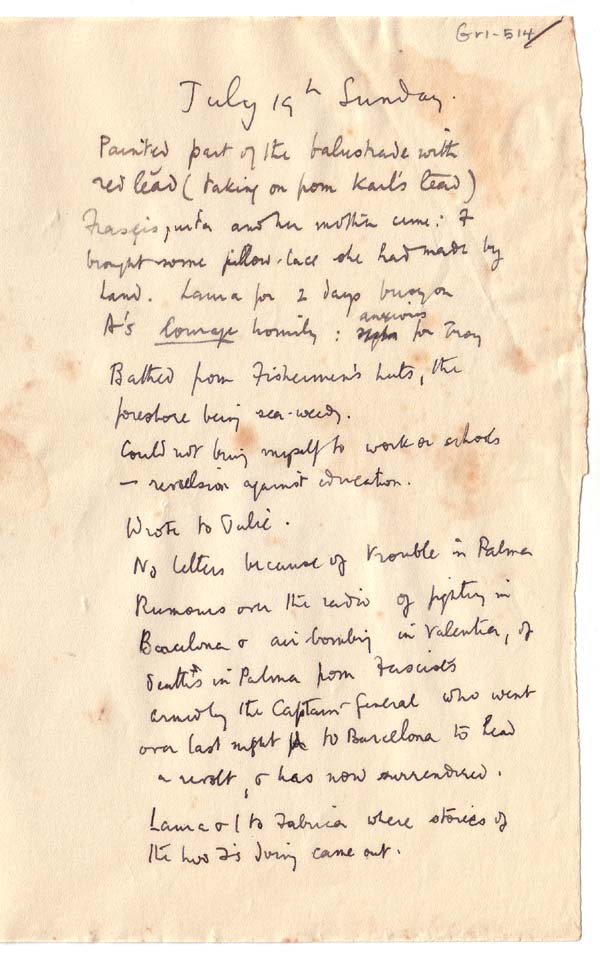 Gr1-514
July 19th Sunday.
Painted part of the balustrade with
red lead (taking on from Karl's lead)
and her mother came: F
brought some pillow-lace she had made by
hand. Laura for 2 days busy on
A's Courage homily: anxious for Troy
Bathed from Fishermen's huts, the
foreshore being sea-weedy.
Could not bring myself to work or schools
— revulsion against education.
Wrote to Julie.
No letters because of trouble in Palma
Rumours over the radio of fighting in
Barcelona & air-bombing in Valentia, of
deaths in Palma from Fascists
armed by the Captain-General who went
over last night to Barcelona to lead
a revolt, & has now surrendered.
Laura & I to Fabrica where stories of
the two F's doing came out.